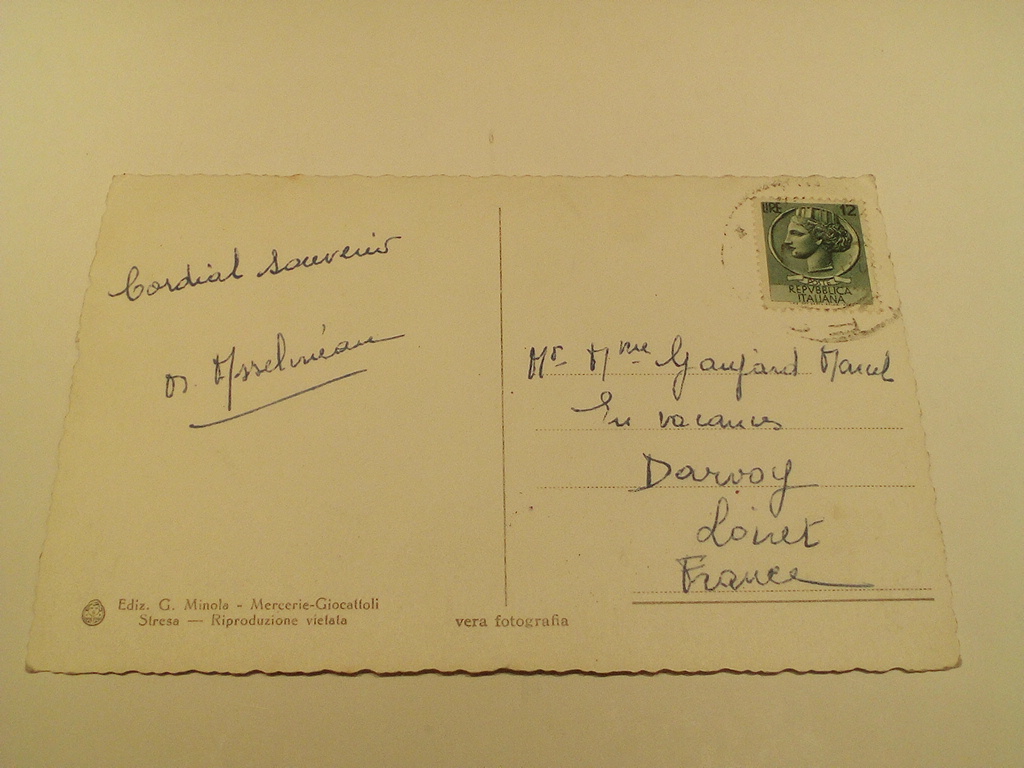 Cordial souvenir
M. Asselineau
LIRE 12
POSTE
REPVBBLICA
ITALIANA
Mr Mme Gaujard Marcel
En vacances
Darvoy
Loiret
France
Ediz. G. Minola - Mercerie-Giocattoli
Stresa — Riproduzione vietata
vera fotografia